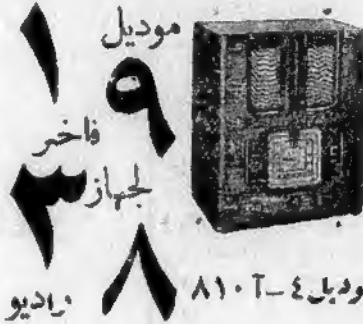 موديل
١٩
فاخر
لجهاز
٣٨
راديو
موديل ٤_٨١٠T